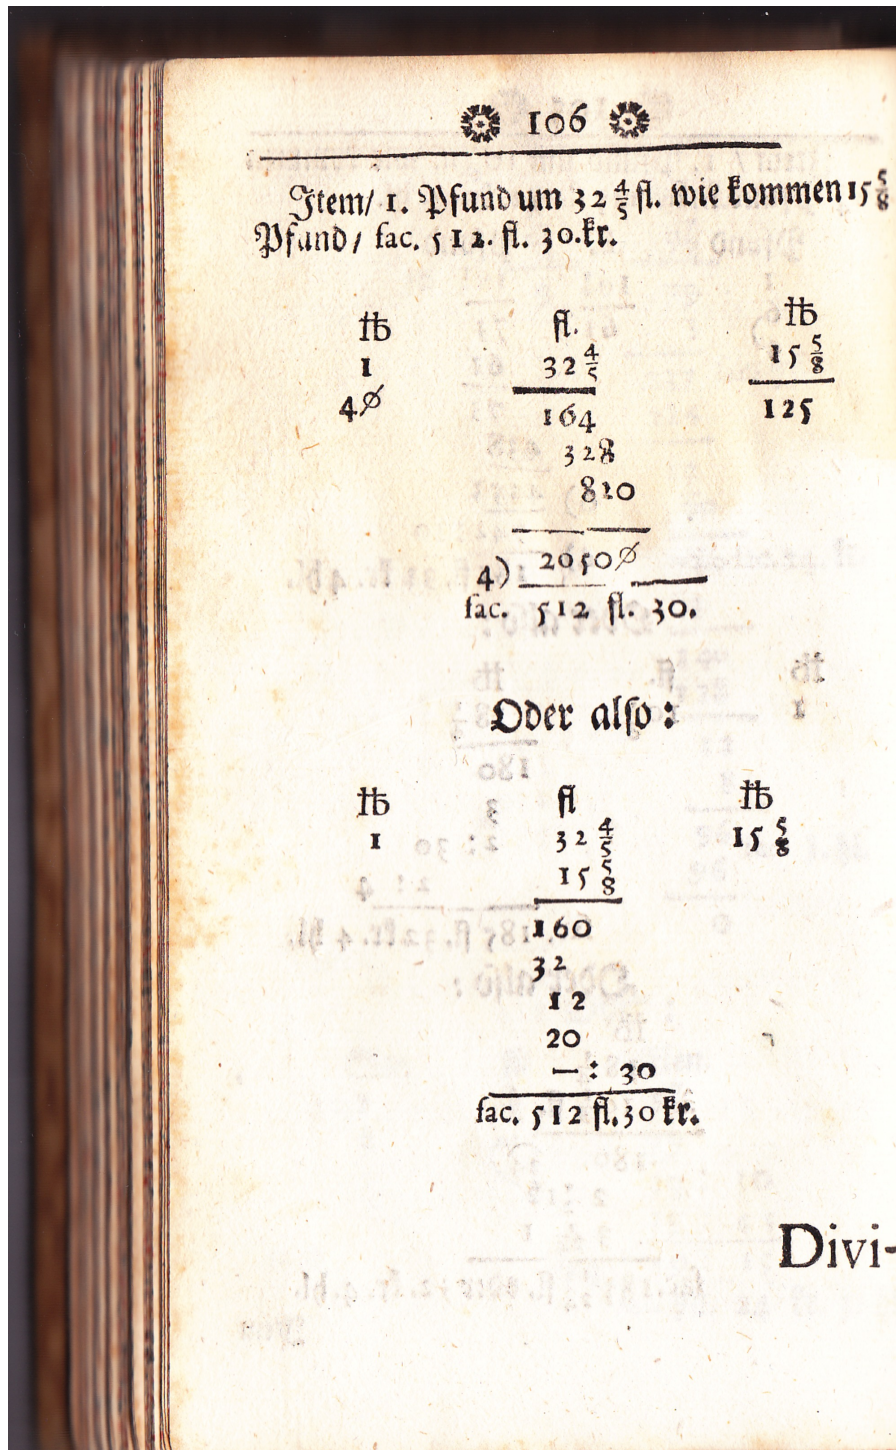 106
Item/ 1. Pfund um 32 4/5 fl. wie kommen 15 5/8
Pfund/ fac. 512. fl. 30.kr.
℔ fl. ℔
1 32 4/5 15 5/8
40̸ 164 125
328
820
4) 20500̸
fac. 512 fl. 30.
Oder also:
℔ fl ℔
1 32 4/5 15 5/8
15 5/8
160
32
12
20
—: 30
fac. 512 fl. 30 kr.
Divi-